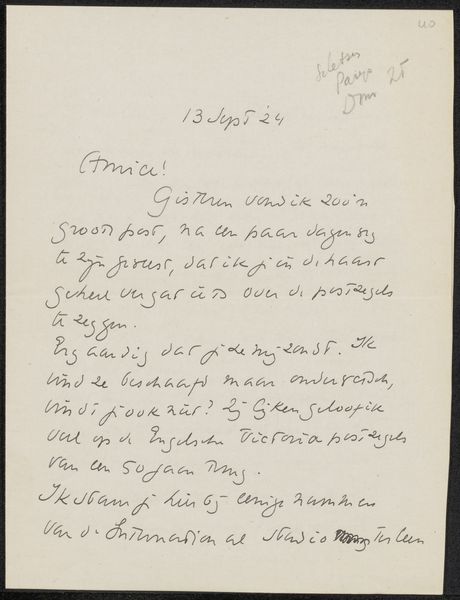 40
13 Sept '24
Amice!
Gisteren vond ik zoo'n
groote post, na een paar dagen weg
te zijn geweest, dat ik je in de haast
geheel vergat iets over de postzegels
te zeggen.
Erg aardig dat je ze mij zondt. Ik
vind ze beschaafd maar ouderwetsch,
vindt je ook niet? Zij lijken geloof ik
veel op de Engelsche Victoria postzegels
van een 50 jaar terug.
Ik stuur je hierbij eenige nummers
van de International Studio ter leen